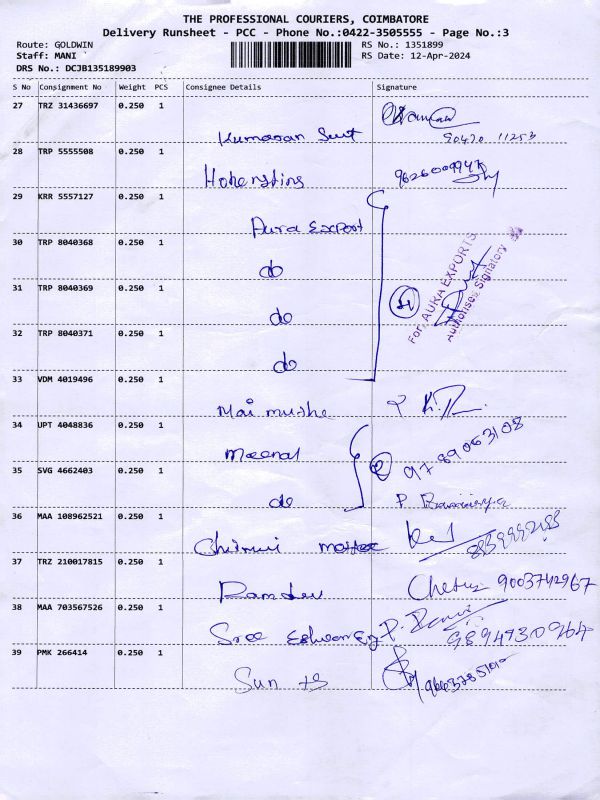 THE PROFESSIONAL COURIERS, COIMBATORE
Delivery Runsheet - PCC - Phone No.:0422-3505555 - Page No.:3
Route: GOLDWIN
Staff: MANI
DRS No.: DCJB135189903
RS No.: 1351899
RS Date: 12-Apr-2024
S No Consignment No Weight PCS Consignee Details Signature
27 TRZ 31436697 0.250 1
Kumaran 90470 11253
28 TRP 5555508 0.250 1
29 KRR 5557127 0.250 1
Aura Export
30 TRP 8040368 0.250 1
do
31 TRP 8040369 0.250 1
do
For, AURA EXPORTS
Authorised Signatory
32 TRP 8040371 0.250 1
do
33 VDM 4019496 0.250 1
34 UPT 4048836 0.250 1
Meenal 9789063108
35 SVG 4662403 0.250 1
do P.
36 MAA 108962521 0.250 1
37 TRZ 210017815 0.250 1
Ramdev 9003742967
38 MAA 703567526 0.250 1
Sree 9894730964
39 PMK 266414 0.250 1
Sun